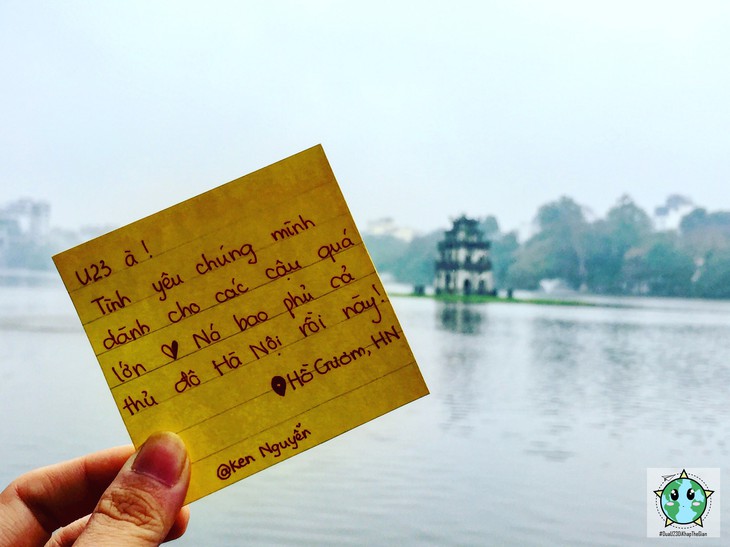 U23 à!
Tình yêu chúng mình
dành cho các cậu quá
lớn ♥ Nó bao phủ cả
thủ đô Hà Nội rồi này!
Hồ Gươm, HN
@ken Nguyễn
#DuaU23DiKhapTheGian